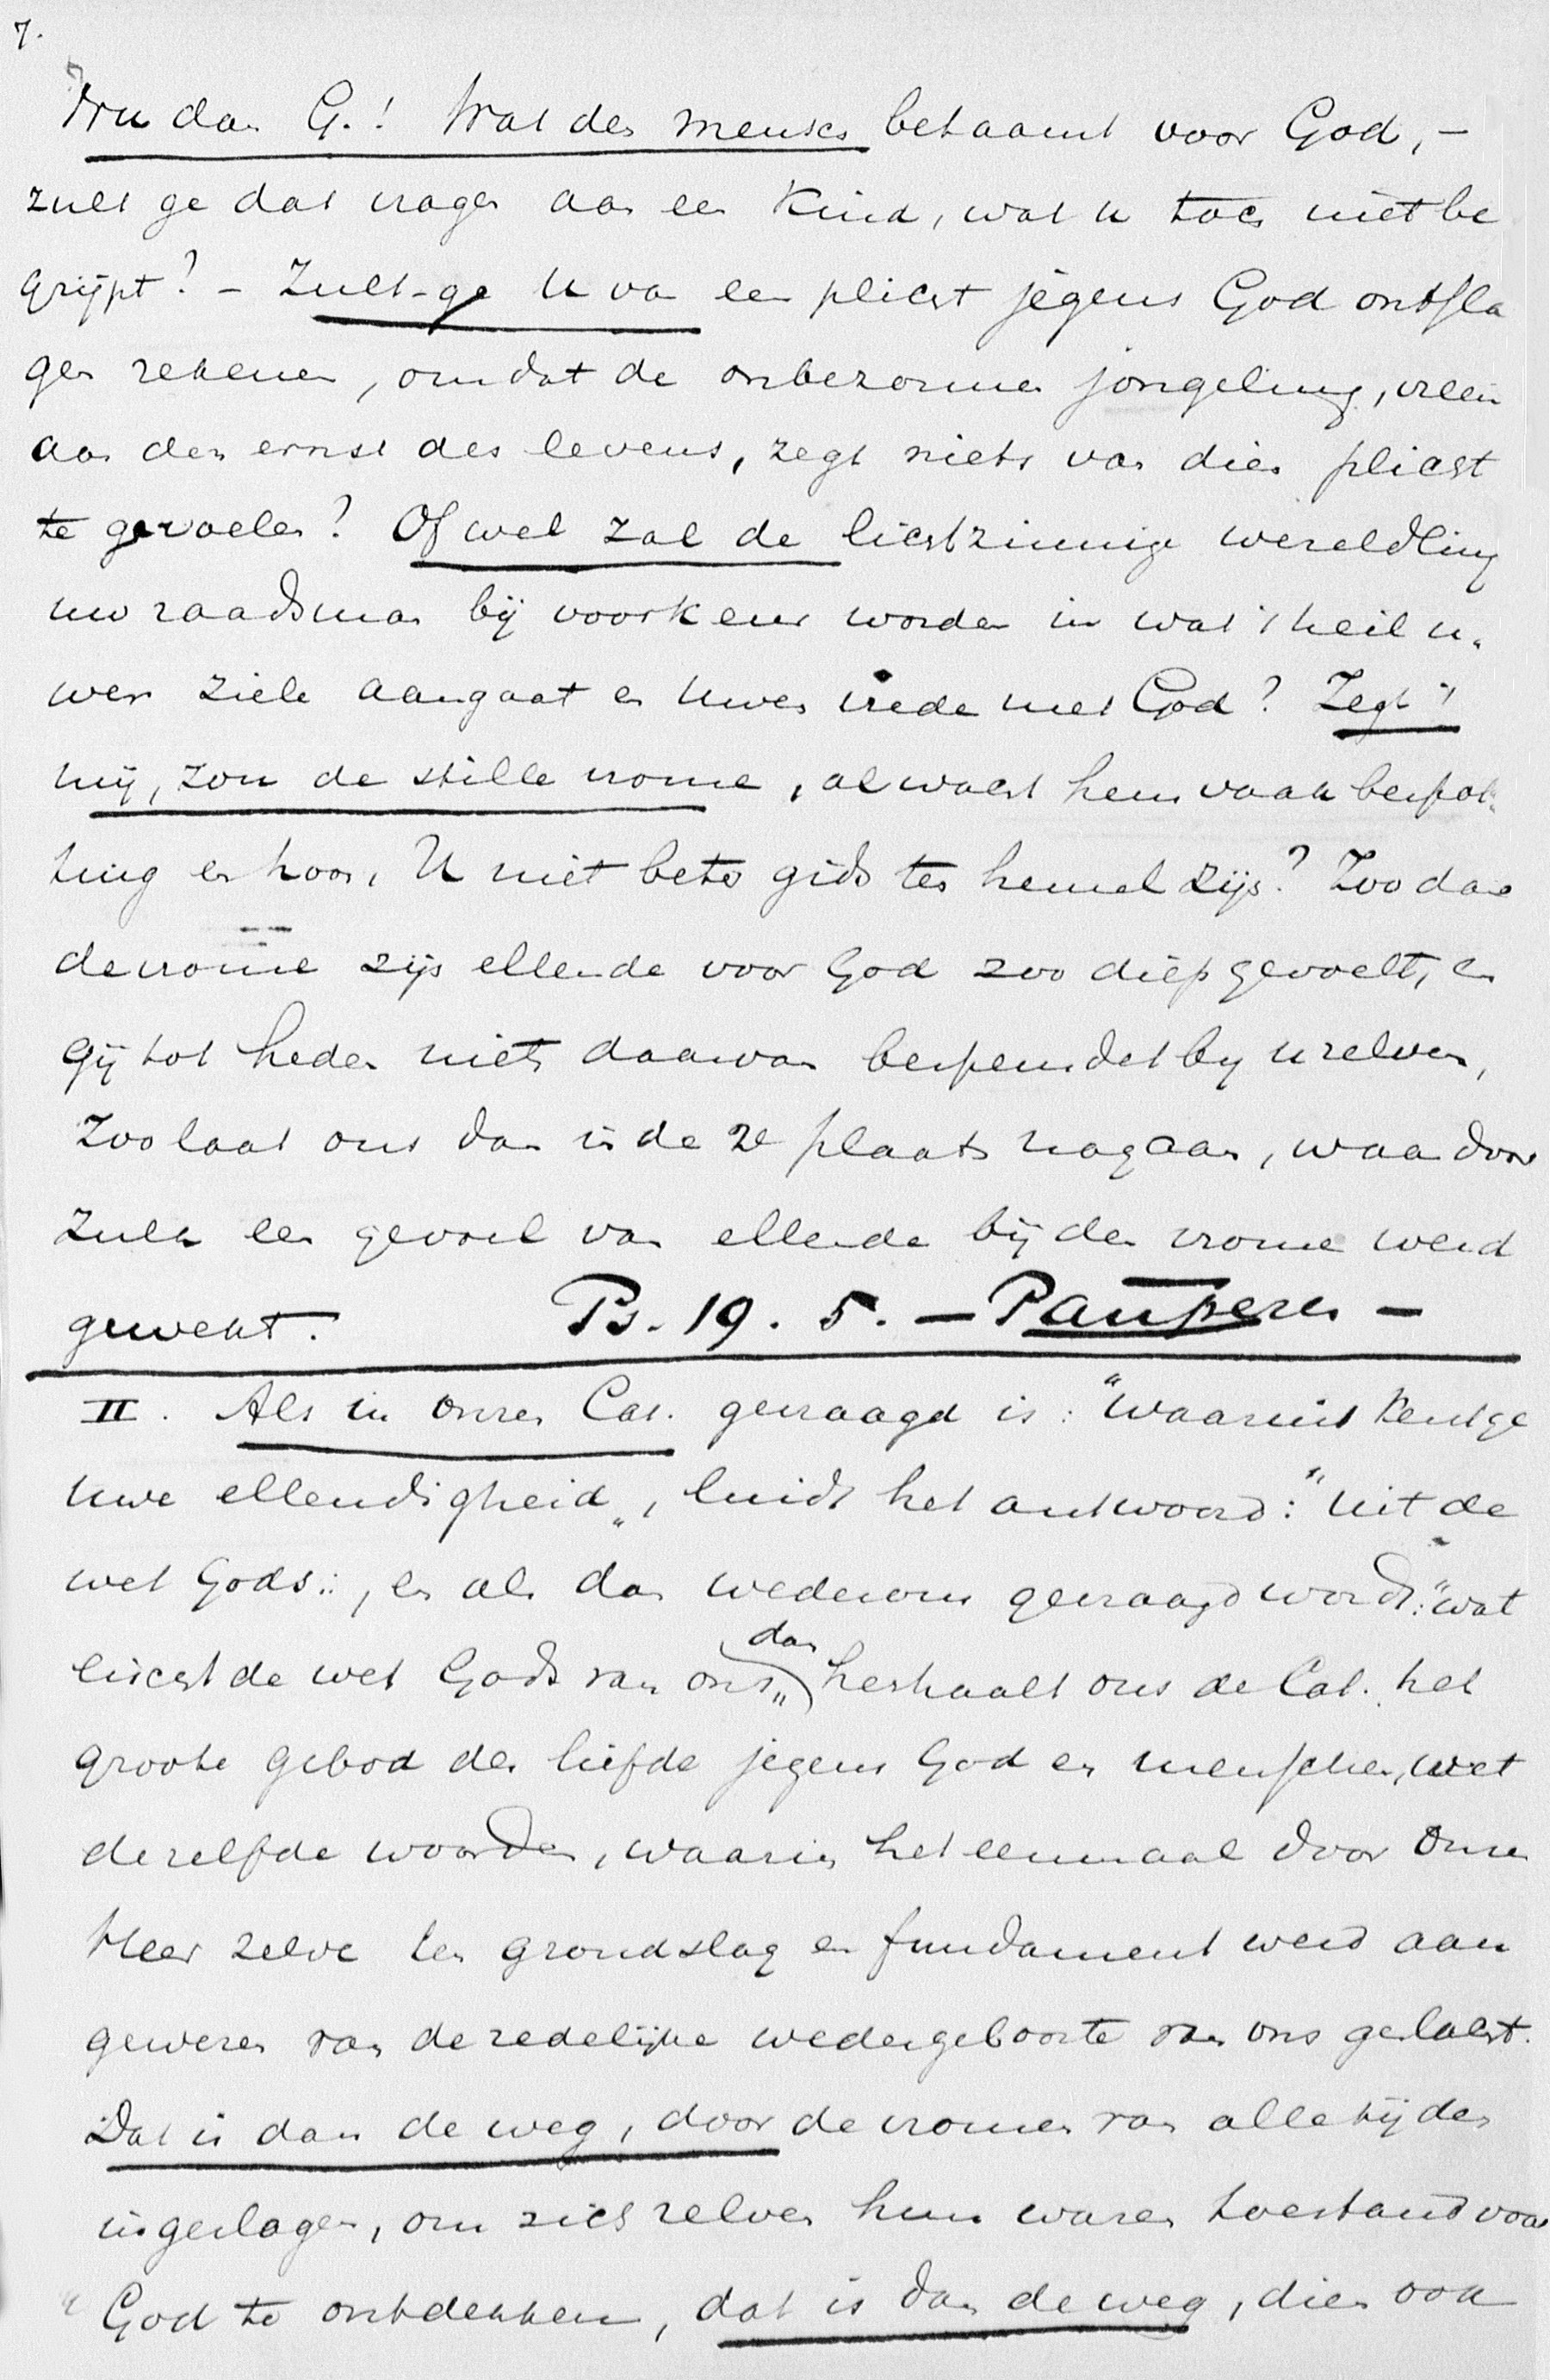 7.
Nu dan G.! Wat den mensch betaamt voor God, –
zult ge dat vragen aan een kind, wat u toch niet be
grijpt? – Zult ge U van een plicht jegens God ontsla
gen rekenen, omdat de onbezonnen jongeling, vreemd
aan den ernst des levens, zegt niets van dien plicht
te gevoelen? Of wel zal de lichtzinnige wereldling
uw raadsman bij voorkeur worden in wat 't heil u„
wer ziele aangaat en uwen vrede met God? Zegt 't
mij, zou de stille vrome, al wacht hem vaak bespot„
ting en hoon, U niet beter gids ten hemel zijn? Zoo dan
de vrome zijn ellende voor God zoo diep gevoelt, en
gij tot heden niets daarvan bespeurdet by uzelven,
Zoo laat ons dan in de 2e plaats nagaan, waardoor
zulk een gevoel van ellende bij den vrome werd
gewekt. Ps. 19. 5. – Pauperes –
II. Als in onzen Cat. gevraagd is: "Waaruit kent ge
uwe ellendigheid„, luidt het antwoord: "uit de
wet Gods„, en als dan wederom gevraagd wordt: "wat
eischt de wet Gods van ons„ dan herhaalt ons de Cat. het
groote gebod der liefde jegens God en menschen, met
dezelfde woorden, waarin het eenmaal door onzen
Heer zelve ten grondslag en fundament werd aan
gewezen van de zedelijke wedergeboorte van ons geslacht.
Dat is dan de weg, door de vromen van alle tijden
ingeslagen, om zich zelven hun waren toestand voor
God te ontdekken, dat is dan de weg, dien ook